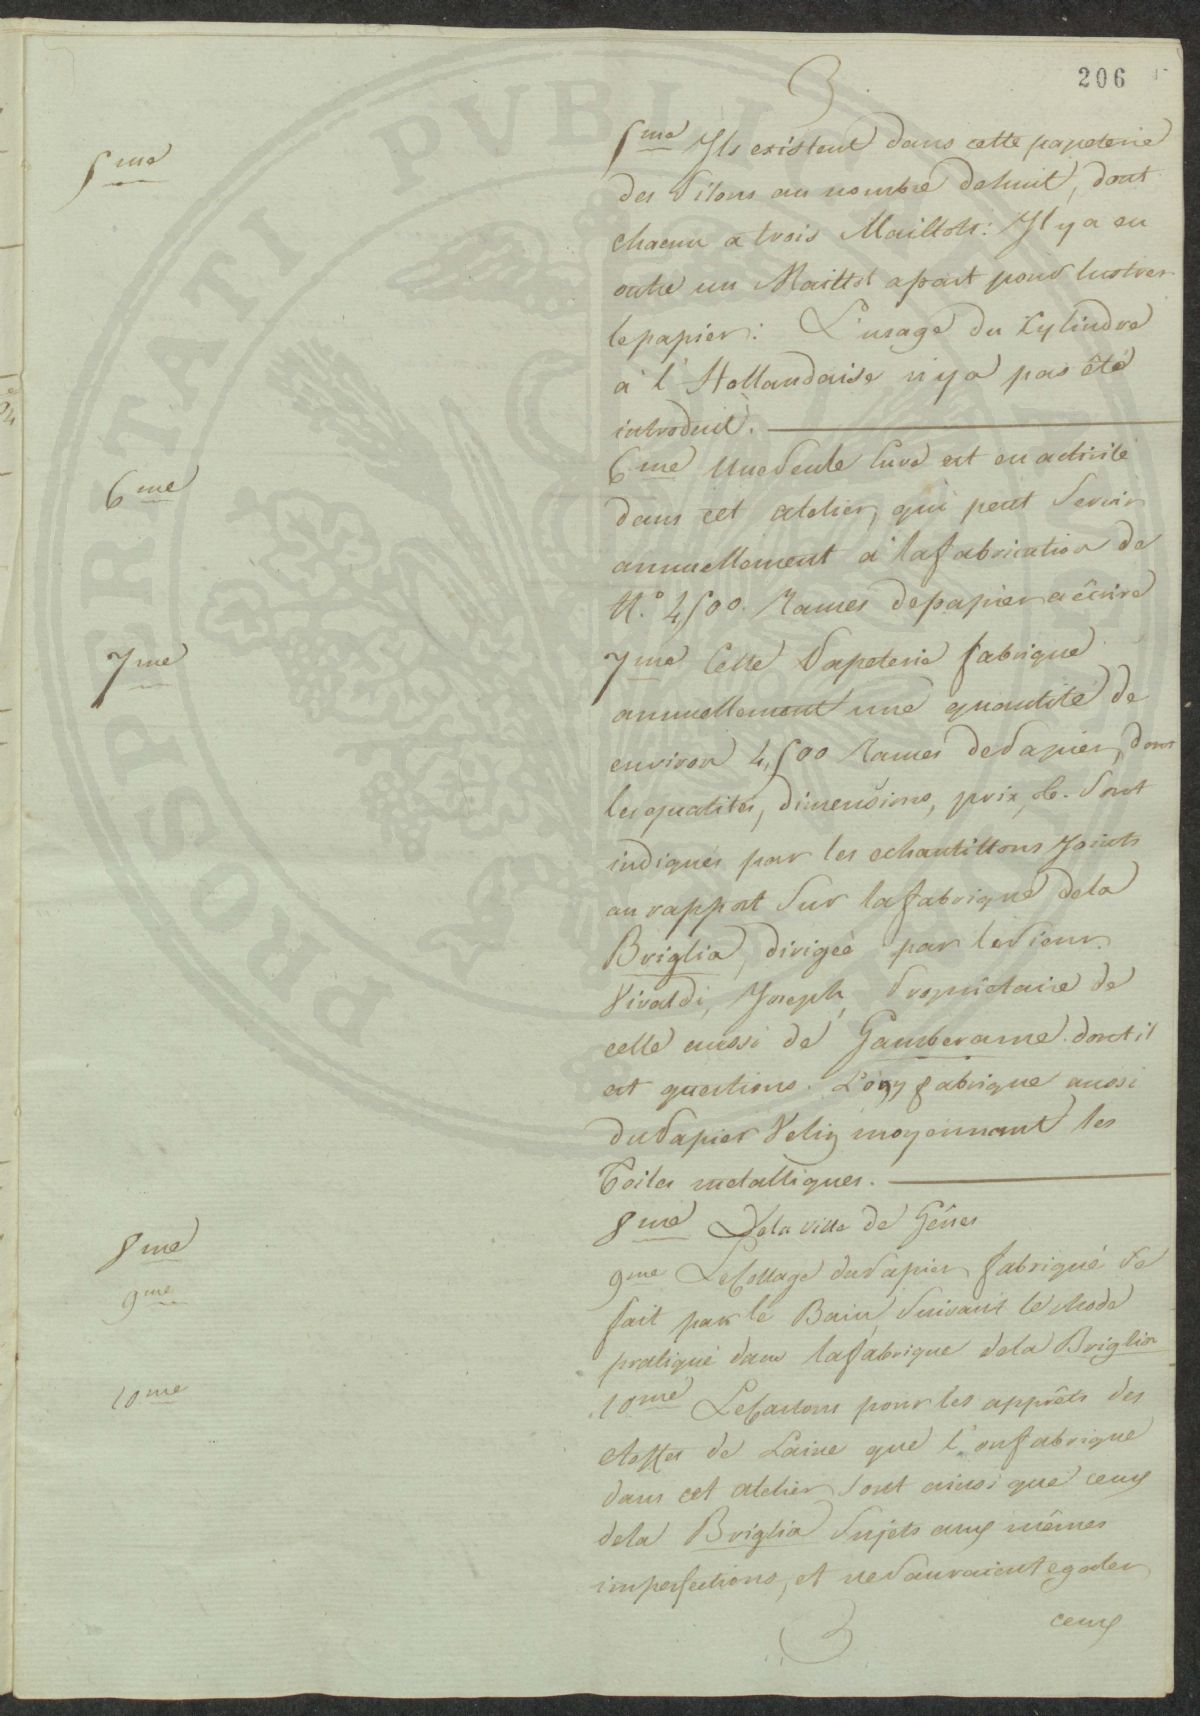 206
3
5me
5me Ils existent dans cette papeterie
des Pilons au nombre dehuit, dont
chacun a trois Maillots: Il y a en
outre un Maillot apart pour lustrer
lepapier: L'usage du Cylindre
à l'Hollandaise n'y a pas été
introduit.
6me
6me Uneseule Cuve est en activité
dans cet atelier, qui peut servir
annuellement à lafabrication de
N.o 4500. Rames depapier a écrire
7me
7me Cette Papeterie fabrique
annuellement une quantité de
environ 4,500 Rames dePapier, dont
lesqualités, dimensions, prix, &c. sont
indiqués par les echantillons Joints
au rapport sur lafabrique dela
Briglia, dirigée par leSieur
Vivaldi, Joseph, Propriétaire de
celle aussi de Gamberame dont il
est questions. L'ony fabrique aussi
duPapier Velin moyennant les
Toiles metalliques.
8me
8me Dela ville de Gênes
9me
9me LeCollage duPapier fabriqué se
fait par le Bain, suivant le Mode
pratiqué dans lafabrique dela Briglia
10me
10me LeCartons pour les apprêts des
etoffes de Laine que l'onfabrique
dans cet atelier sont ainsi que ceux
dela Briglia sujets aux mêmes
imperfections, et neSauraient egaler
ceux
PROSPERITATI PVBLICAE